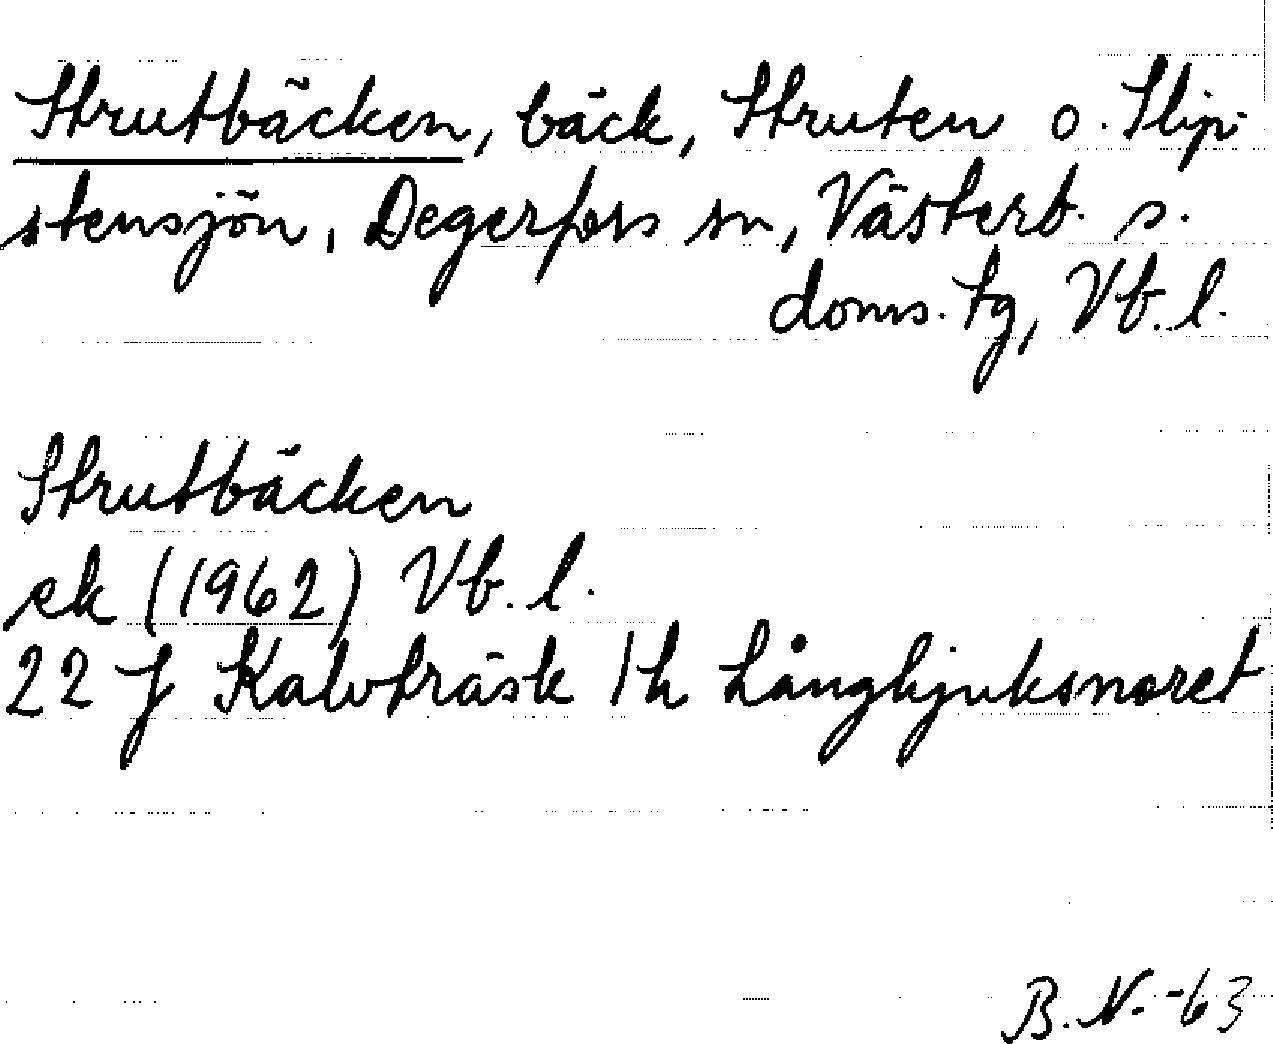 Strutbäcken, bäck, Struten o. Slip-
stensjön, Degerfors sn, Västerb. s.
doms. tg, Vb. l.
Strutbäcken
ek (1962) Vb. l.
22 J Kalvträsk 1h Långhjuksnoret
B. N. -63